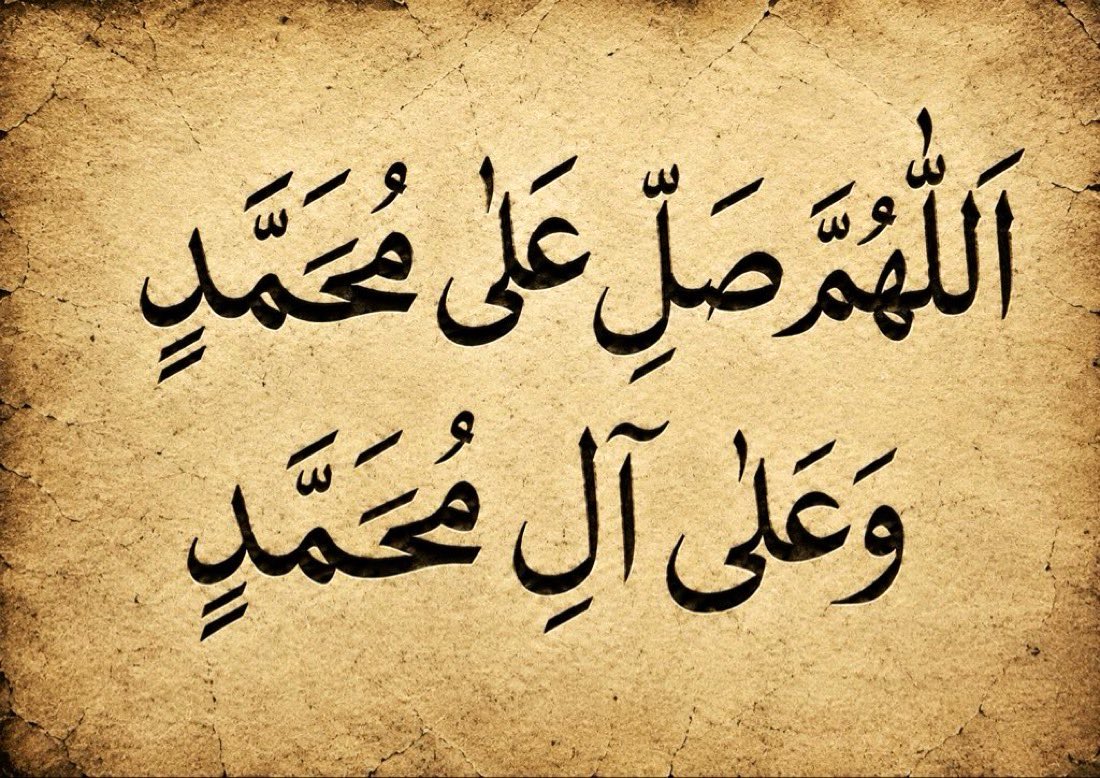 اَللّٰهُمَّ صَلِّ عَلٰى مُحَمَّدٍ
وَعَلٰى آلِ مُحَمَّدٍ